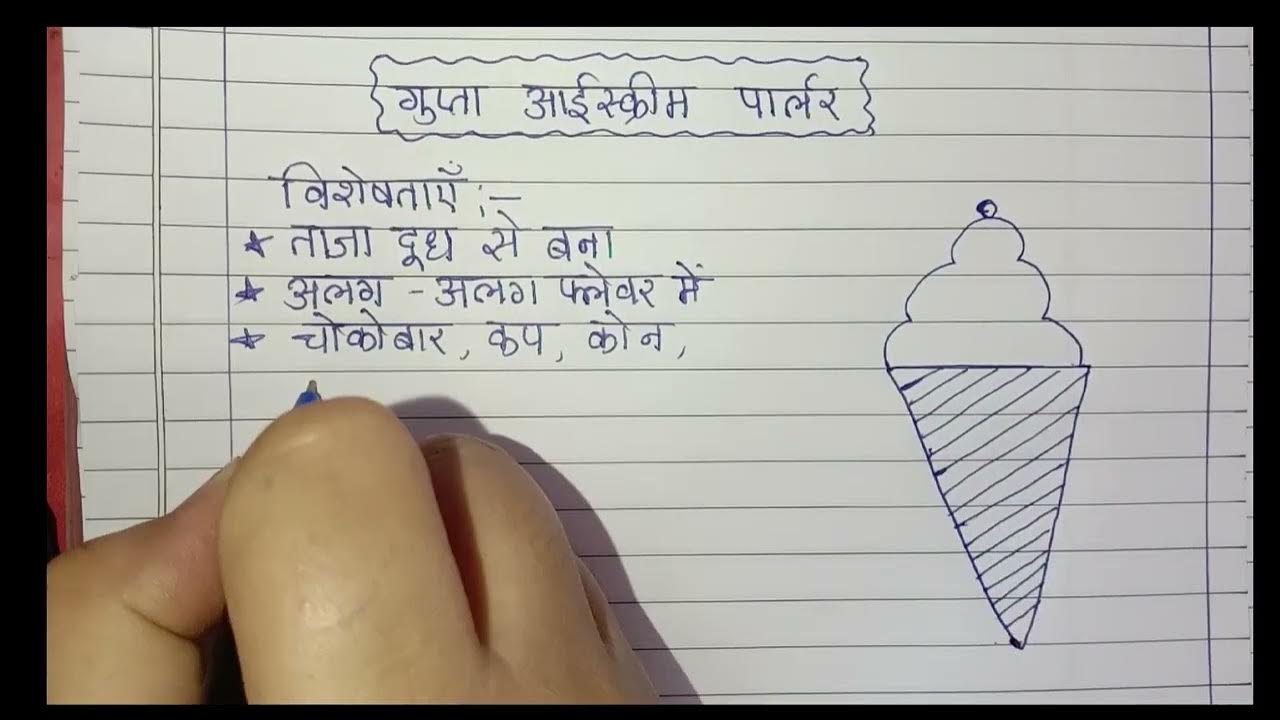 गुप्ता आईस्क्रीम पार्लर
विशेषताएँ :-
★ ताजा दूध से बना
★ अलग - अलग फ्लेवर में
★ चोकोबार, कप, कोन,